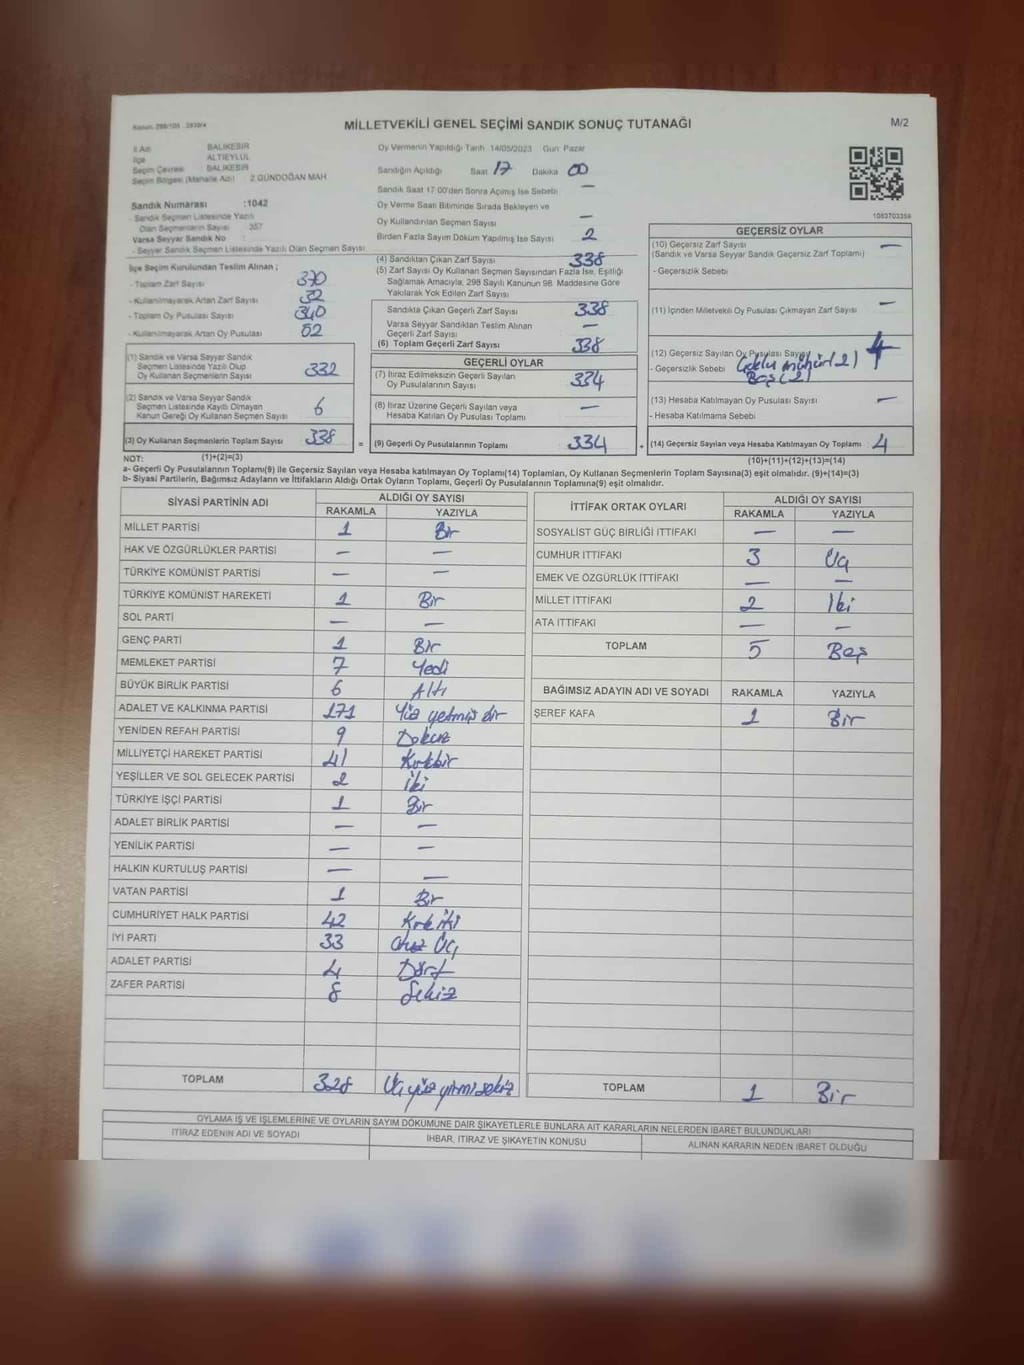 Kanun: 298/105 : 2839/4
MİLLETVEKİLİ GENEL SEÇİMİ SANDIK SONUÇ TUTANAĞI
M/2
İl Adı BALIKESİR
İlçe ALTIEYLÜL
Seçim Çevresi BALIKESİR
Seçim Bölgesi (Mahalle Adı) 2.GÜNDOĞAN MAH.
Sandık Numarası :1042
- Sandık Seçmen Listesinde Yazılı
Olan Seçmenlerin Sayısı : 357
Varsa Seyyar Sandık No :
- Seyyar Sandık Seçmen Listesinde Yazılı Olan Seçmen Sayısı
İlçe Seçim Kurulundan Teslim Alınan ;
- Toplam Zarf Sayısı 370
- Kullanılmayarak Artan Zarf Sayısı 32
- Toplam Oy Pusulası Sayısı
- Kullanılmayarak Artan Oy Pusulası
(1) Sandık ve Varsa Seyyar Sandık
Seçmen Listesinde Yazılı Olup
Oy Kullanan Seçmenlerin Sayısı 332
(2) Sandık ve Varsa Seyyar Sandık
Seçmen Listesinde Kayıtlı Olmayan
Kanun Gereği Oy Kullanan Seçmen Sayısı 6
(3) Oy Kullanan Seçmenlerin Toplam Sayısı 338
Oy Vermenin Yapıldığı Tarih 14/05/2023 Gün: Pazar
Sandığın Açıldığı Saat 17 Dakika 00
Sandık Saat 17.00'den Sonra Açılmış İse Sebebi —
Oy Verme Saati Bitiminde Sırada Bekleyen ve
Oy Kullandırılan Seçmen Sayısı —
Birden Fazla Sayım Döküm Yapılmış İse Sayısı 2
(4) Sandıktan Çıkan Zarf Sayısı 338
(5) Zarf Sayısı Oy Kullanan Seçmen Sayısından Fazla İse, Eşitliği
Sağlamak Amacıyla, 298 Sayılı Kanunun 98. Maddesine Göre
Yakılarak Yok Edilen Zarf Sayısı
Sandıkta Çıkan Geçerli Zarf Sayısı 338
Varsa Seyyar Sandıktan Teslim Alınan
Geçerli Zarf Sayısı —
(6) Toplam Geçerli Zarf Sayısı 338
GEÇERLİ OYLAR
(7) İtiraz Edilmeksizin Geçerli Sayılan
Oy Pusulalarının Sayısı 334
(8) İtiraz Üzerine Geçerli Sayılan veya
Hesaba Katılan Oy Pusulası Toplamı —
= (9) Geçerli Oy Pusulalarının Toplamı 334
1083703356
GEÇERSİZ OYLAR
(10) Geçersiz Zarf Sayısı —
(Sandık ve Varsa Seyyar Sandık Geçersiz Zarf Toplamı)
- Geçersizlik Sebebi
(11) İçinden Milletvekili Oy Pusulası Çıkmayan Zarf Sayısı —
(12) Geçersiz Sayılan Oy Pusulası Sayısı 4
- Geçersizlik Sebebi Çoklu mühür(2)
Boş(2)
(13) Hesaba Katılmayan Oy Pusulası Sayısı —
- Hesaba Katılmama Sebebi
+ (14) Geçersiz Sayılan veya Hesaba Katılmayan Oy Toplamı 4
NOT: (1)+(2)=(3)
(10)+(11)+(12)+(13)=(14)
a- Geçerli Oy Pusulalarının Toplamı(9) ile Geçersiz Sayılan veya Hesaba katılmayan Oy Toplamı(14) Toplamları, Oy Kullanan Seçmenlerin Toplam Sayısına(3) eşit olmalıdır. (9)+(14)=(3)
b- Siyasi Partilerin, Bağımsız Adayların ve İttifakların Aldığı Ortak Oyların Toplamı, Geçerli Oy Pusulalarının Toplamına(9) eşit olmalıdır.
SİYASİ PARTİNİN ADI ALDIĞI OY SAYISI
RAKAMLA YAZIYLA
MİLLET PARTİSİ 1 Bir
HAK VE ÖZGÜRLÜKLER PARTİSİ — —
TÜRKİYE KOMÜNİST PARTİSİ — —
TÜRKİYE KOMÜNİST HAREKETİ 1 Bir
SOL PARTİ — —
GENÇ PARTİ 1 Bir
MEMLEKET PARTİSİ 7 Yedi
BÜYÜK BİRLİK PARTİSİ 6 Altı
ADALET VE KALKINMA PARTİSİ 171 Yüz yetmiş bir
YENİDEN REFAH PARTİSİ 9 Dokuz
MİLLİYETÇİ HAREKET PARTİSİ 41 Kırkbir
YEŞİLLER VE SOL GELECEK PARTİSİ 2 İki
TÜRKİYE İŞÇİ PARTİSİ 1 Bir
ADALET BİRLİK PARTİSİ — —
YENİLİK PARTİSİ — —
HALKIN KURTULUŞ PARTİSİ — —
VATAN PARTİSİ 1 Bir
CUMHURİYET HALK PARTİSİ 42 Kırk iki
İYİ PARTİ 33 Otuz Üç
ADALET PARTİSİ 4 Dört
ZAFER PARTİSİ 8 Sekiz
TOPLAM 328 Üç yüz yirmi sekiz
İTTİFAK ORTAK OYLARI ALDIĞI OY SAYISI
RAKAMLA YAZIYLA
SOSYALİST GÜÇ BİRLİĞİ İTTİFAKI — —
CUMHUR İTTİFAKI 3 Üç
EMEK VE ÖZGÜRLÜK İTTİFAKI — —
MİLLET İTTİFAKI 2 İki
ATA İTTİFAKI — —
TOPLAM 5 Beş
BAĞIMSIZ ADAYIN ADI VE SOYADI RAKAMLA YAZIYLA
ŞEREF KAFA 1 Bir
TOPLAM 1 Bir
OYLAMA İŞ VE İŞLEMLERİNE VE OYLARIN SAYIM DÖKÜMÜNE DAİR ŞİKAYETLERLE BUNLARA AİT KARARLARIN NELERDEN İBARET BULUNDUKLARI
İTİRAZ EDENİN ADI VE SOYADI İHBAR, İTİRAZ VE ŞİKAYETİN KONUSU ALINAN KARARIN NEDEN İBARET OLDUĞU